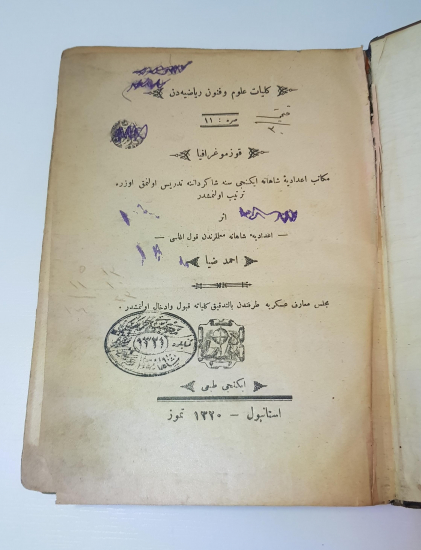 كليات علوم وفنون رياضيه‌دن
نمره : ١١
قوزموغرافيا
مكاتب اعداديهٔ شاهانه ايكنجى سنه شاكرداننه تدريس اولنمق اوزره
ترتيب اولنمشدر
اثر
— اعداديهٔ شاهانه معلملرندن قول اغاسى —
احمد ضيا
مجلس معارف عسكريه طرفندن بالتدقيق كلياته قبول وادخال اولنمشدر .
ايكنجى طبعى
استانبول — ١٣٢٠ تموز